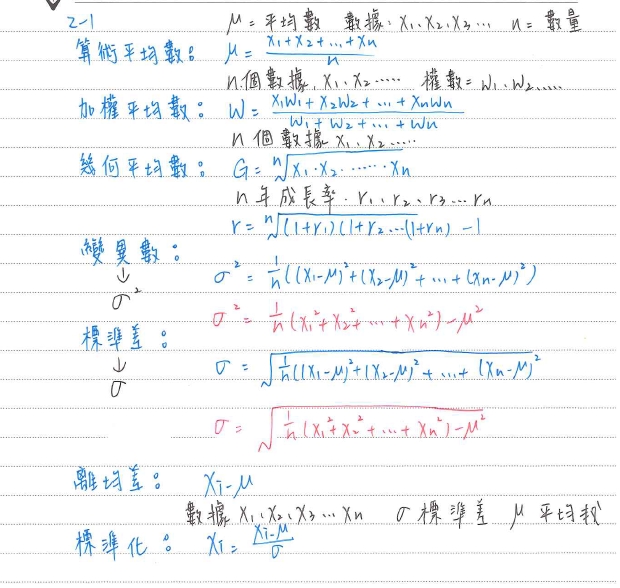 2-1
μ = 平均數 數據: x₁、x₂、x₃… n = 數量
算術平均數: μ = (x₁+x₂+…+xₙ)/n
n個數據, x₁、x₂…… 權數= w₁、w₂……
加權平均數: W = (x₁w₁+x₂w₂+…+xₙwₙ)/(w₁+w₂+…+wₙ)
n個數據 x₁、x₂……
幾何平均數: G = ⁿ√(x₁·x₂·……·xₙ)
n年成長率. r₁、r₂、r₃…rₙ
r = ⁿ√((1+r₁)(1+r₂…(1+rₙ) -1
變異數:
↓
σ²
σ² = 1/n((x₁-μ)²+(x₂-μ)²+…+(xₙ-μ)²)
σ² = 1/n(x₁²+x₂²+…+xₙ²)-μ²
標準差:
↓
σ
σ = √(1/n((x₁-μ)²+(x₂-μ)²+…+(xₙ-μ)²
σ = √(1/n(x₁²+x₂²+…+xₙ²)-μ²
離均差: xᵢ-μ
數據 x₁、x₂、x₃…xₙ σ 標準差 μ 平均數
標準化: xᵢ = (xᵢ-μ)/σ